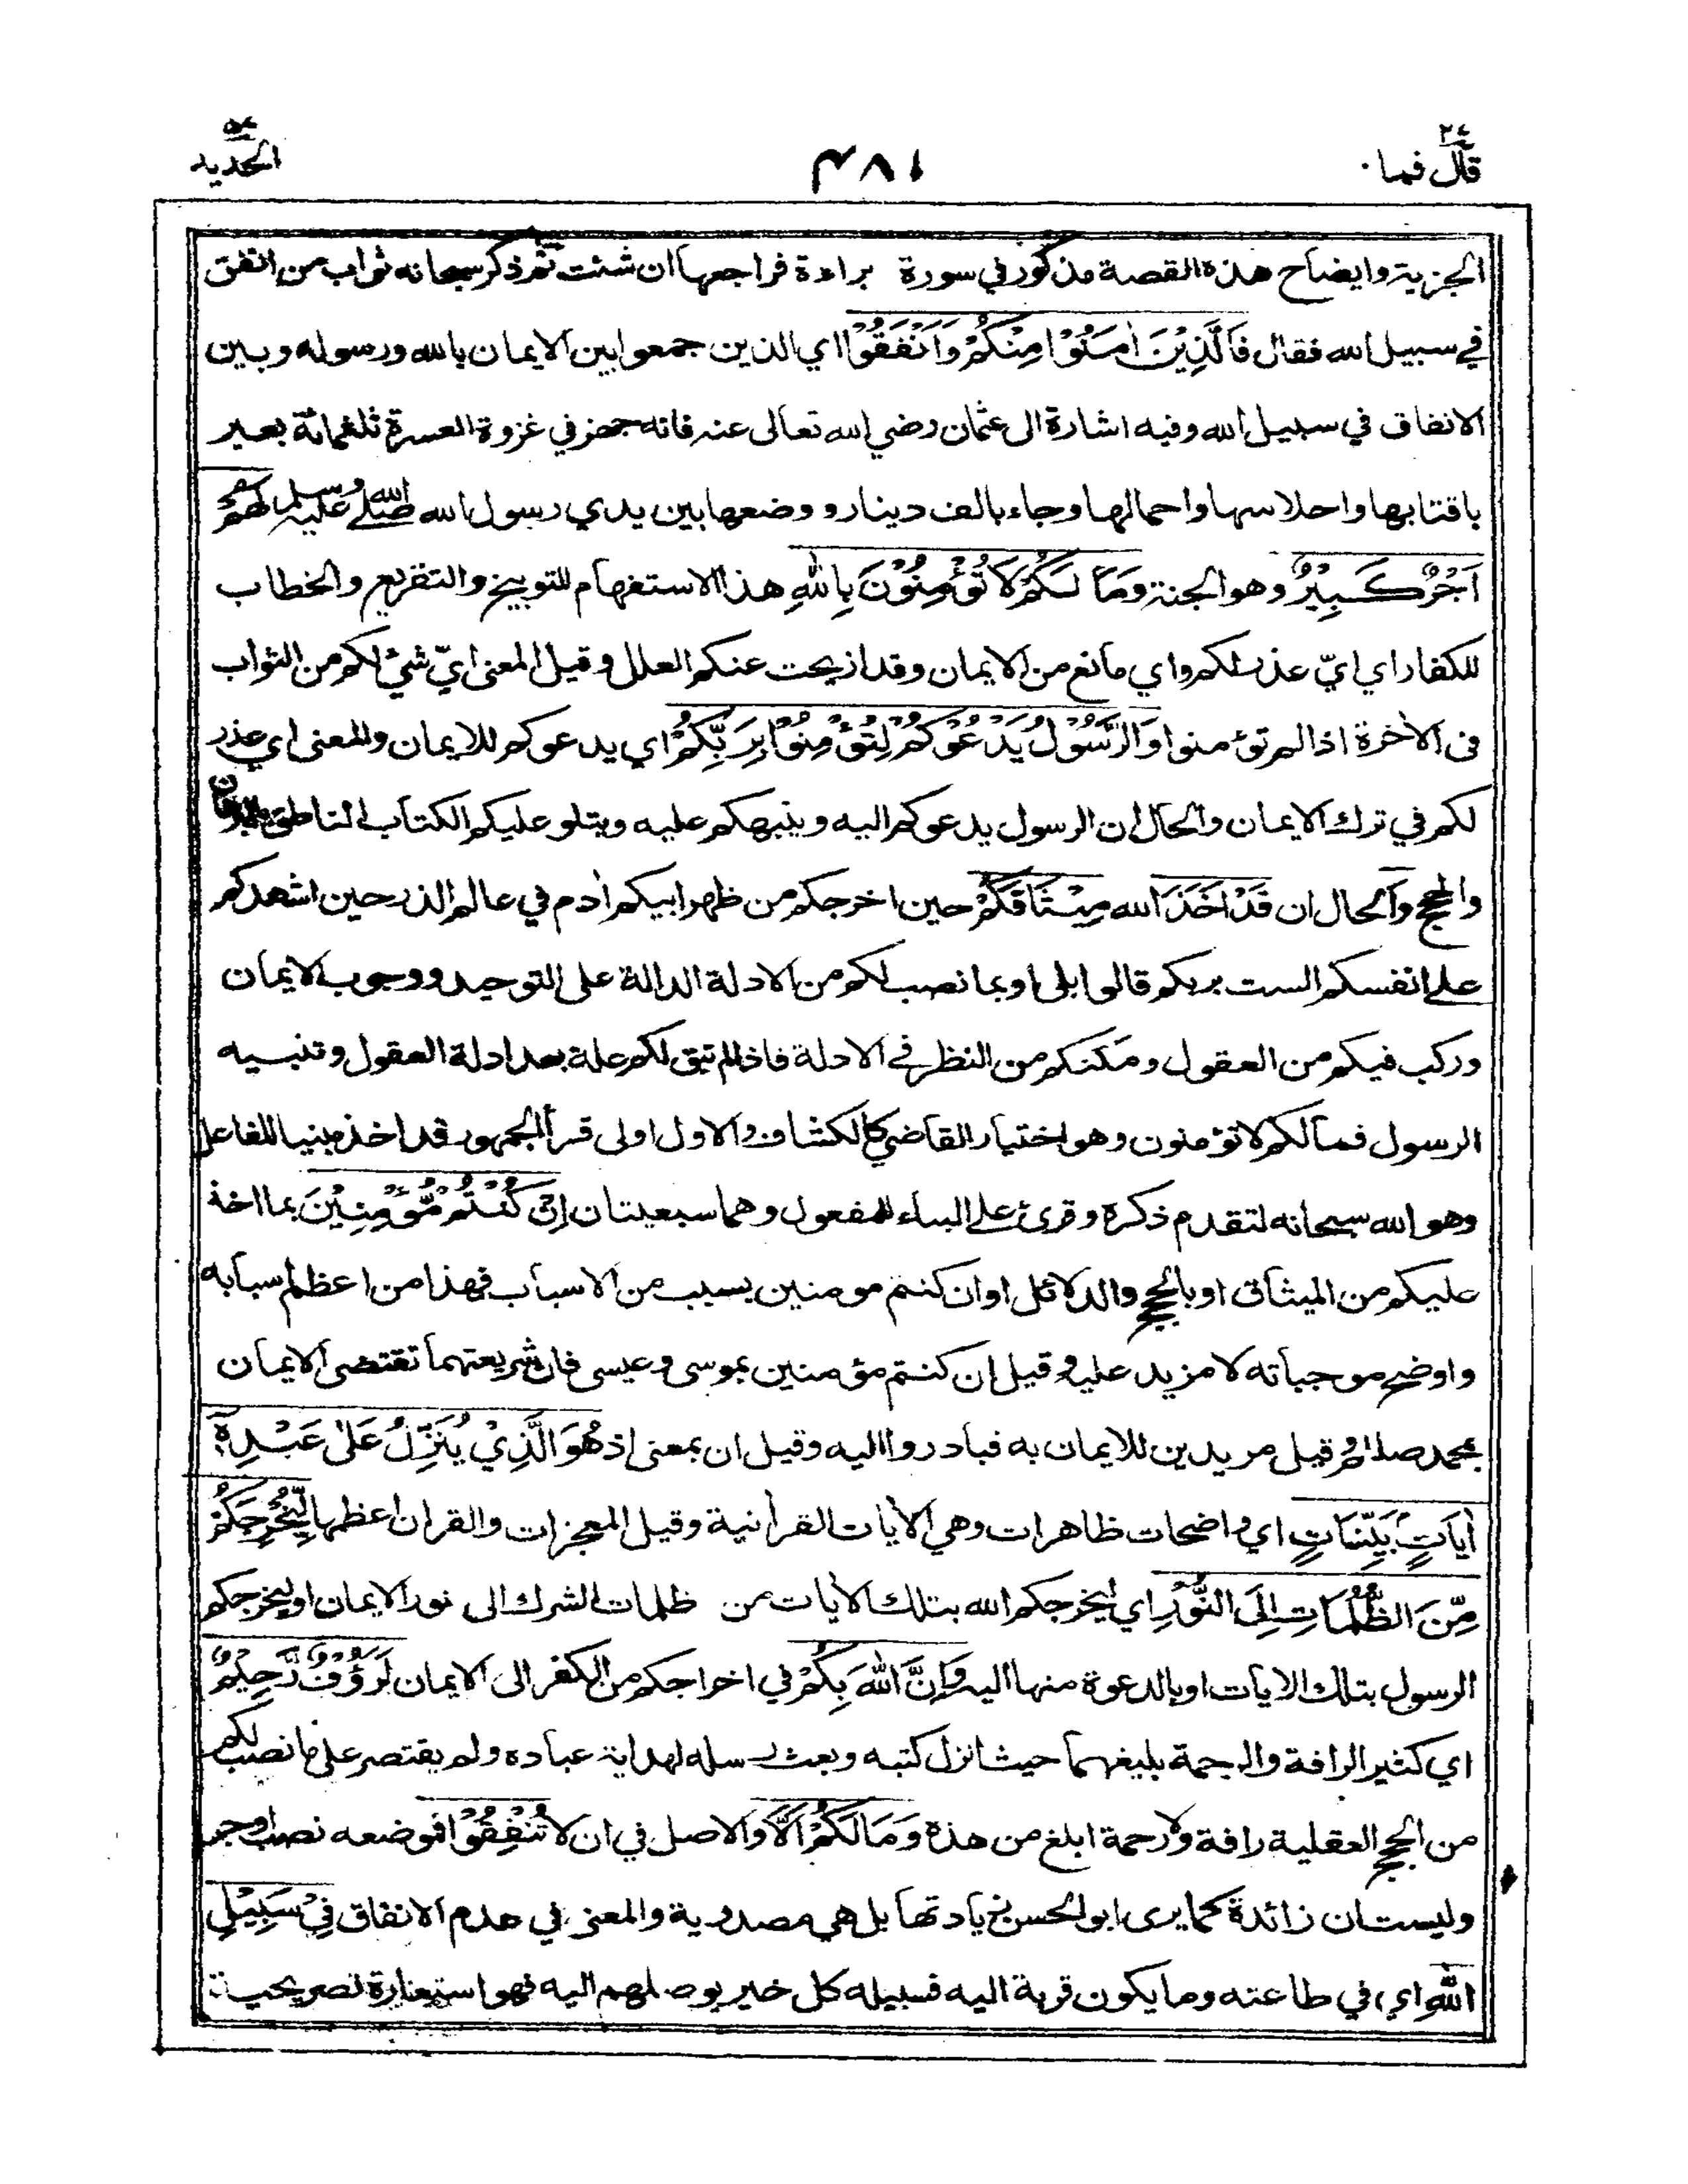 ٢٧
قال فما
٤٨١
٥٧
الحديد
الجزية وايضاح هذه القصة مذكور في سورة براءة فراجعها ان شئت ثم ذكر سبحانه ثواب من انفق
في سبيل الله فقال فَالَّذِيْنَ اٰمَنُوْا مِنْكُمْ وَاَنْفَقُوْا اي الذين جمعوا بين الايمان بالله ورسوله وبين
الانفاق في سبيل الله وفيه اشارة الى عثمان رضي الله تعالى عنه فانه جهز في غزوة العسرة ثلثمائة بعير
باقتابها واحلاسها واحمالها وجاء بالف دينار ووضعها بين يدي رسول الله صلى الله عليه وسلم لَهُمْ
اَجْرٌ كَبِيْرٌ وهو الجنة وَمَا لَكُمْ لَا تُؤْمِنُوْنَ بِاللهِ هذا الاستفهام للتوبيخ والتقريع والخطاب
للكفار اي ايّ عذر لكم واي مانع من الايمان وقد ازيحت عنكم العلل وقيل المعنى ايّ شئ لكم من الثواب
فى الاٰخرة اذا لم تؤمنوا وَالرَّسُوْلُ يَدْعُوْكُمْ لِتُؤْمِنُوْا بِرَبِّكُمْ اي يدعوكم للايمان والمعنى اي عذر
لكم في ترك الايمان والحال ان الرسول يدعوكم اليه وينبهكم عليه ويتلو عليكم الكتاب الناطق
والحجج وَالحال ان قَدْ اَخَذَ الله مِيْثَاقَكُمْ حين اخرجكم من ظهر ابيكم اٰدم في عالم الذر حين اشهدكم
على انفسكم الست بربكم قالوا بلى او بما نصب لكم من الادلة الدالة على التوحيد ووجوب الايمان
وركب فيكم من العقول ومكنكم من النظر في الادلة فاذا لم تبق لكم علة بعد ادلة العقول وتنبيه
الرسول فما لكم لا تؤمنون وهو اختيار القاضي كالكشاف والاول اولى قرأ الجمهور قد اخذ مبنيا للفاعل
وهو الله سبحانه لتقدم ذكره وقرئ على البناء للمفعول وهما سبعيتان اِنْ كُنْتُمْ مُّؤْمِنِيْنَ بما اخذ
عليكم من الميثاق او بالحجج والدلائل او ان كنتم مومنين بسبب من الاسباب فهذا من اعظم اسبابه
واوضح موجباته لا مزيد عليه وقيل ان كنتم مؤمنين بموسى وعيسى فان شريعتهما تقتضى الايمان
بمحمد صللم وقيل مريدين للايمان به فبادروا اليه وقيل ان بمعنى اذ هُوَ الَّذِيْ يُنَزِّلُ عَلٰى عَبْدِهٖ
اٰيَاتٍ بَيِّنَاتٍ اي واضحات ظاهرات وهي الاٰيات القراٰنية وقيل المعجزات والقران اعظمها لِّيُخْرِجَكُمْ
مِّنَ الظُّلُمَاتِ اِلَى النُّوْرِ اي ليخرجكم الله بتلك الاٰيات من ظلمات الشرك الى نور الايمان او ليخرجكم
الرسول بتلك الايات او بالدعوة منها اليه وَاِنَّ اللهَ بِكُمْ في اخراجكم من الكفر الى الايمان لَرَؤُوْفٌ رَّحِيْمٌ
اي كثير الرافة والرحمة بليغهما حيث انزل كتبه وبعث رسله لهداية عباده ولم يقتصر على ما نصب لكم
من الحجج العقلية رافة ولا رحمة ابلغ من هذه وَمَا لَكُمْ اَلَّا والاصل في ان لا تُنْفِقُوْا فموضعه نصب او جر
وليست ان زائدة كما يرى ابو الحسن زيادتها بل هي مصدرية والمعنى في عدم الانفاق فِيْ سَبِيْلِ
اللهِ اي في طاعته وما يكون قربة اليه فسبيله كل خير يوصلهم اليه فهو استعارة تصريحية